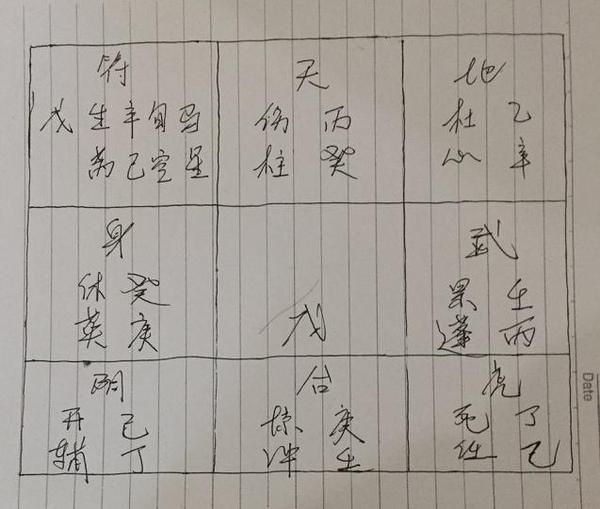 符
戊 生 辛 旬 马
芮 己 空 星
天
伤 丙
柱 癸
地
杜 乙
心 辛
身
休 癸
英 庚
戊
武
景 壬
蓬 丙
阴
开 己
辅 丁
合
惊 庚
冲 壬
虎
死 丁
任 乙
Date